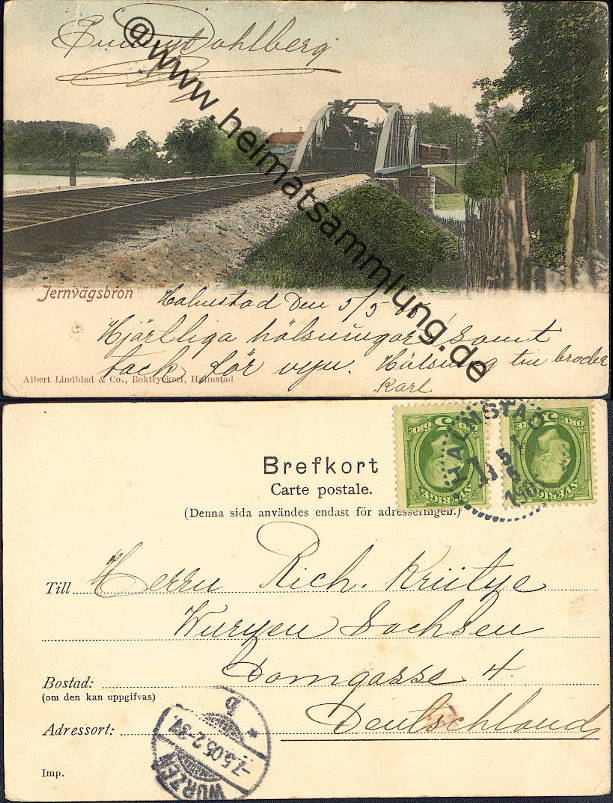 Dahlberg
@www.heimatsammlung.de
Jernvägsbron
Halmstad Den 5/5 05
Hjärtliga hälsningar! Samt
tack för vyn. Hälsning till broder
Karl
Albert Lindblad & Co., Boktryckeri, Halmstad
HALMSTAD
SVERIGE
SVERIGE
Brefkort
Carte postale.
(Denna sida användes endast för adresseringen.)
Till Herrn Rich. Kritze
Wurzen Sachsen
Bostad: Domgasse 4.
(om den kan uppgifvas)
Adressort: Deutschland
WURZEN
7.5.05.
b
Imp.